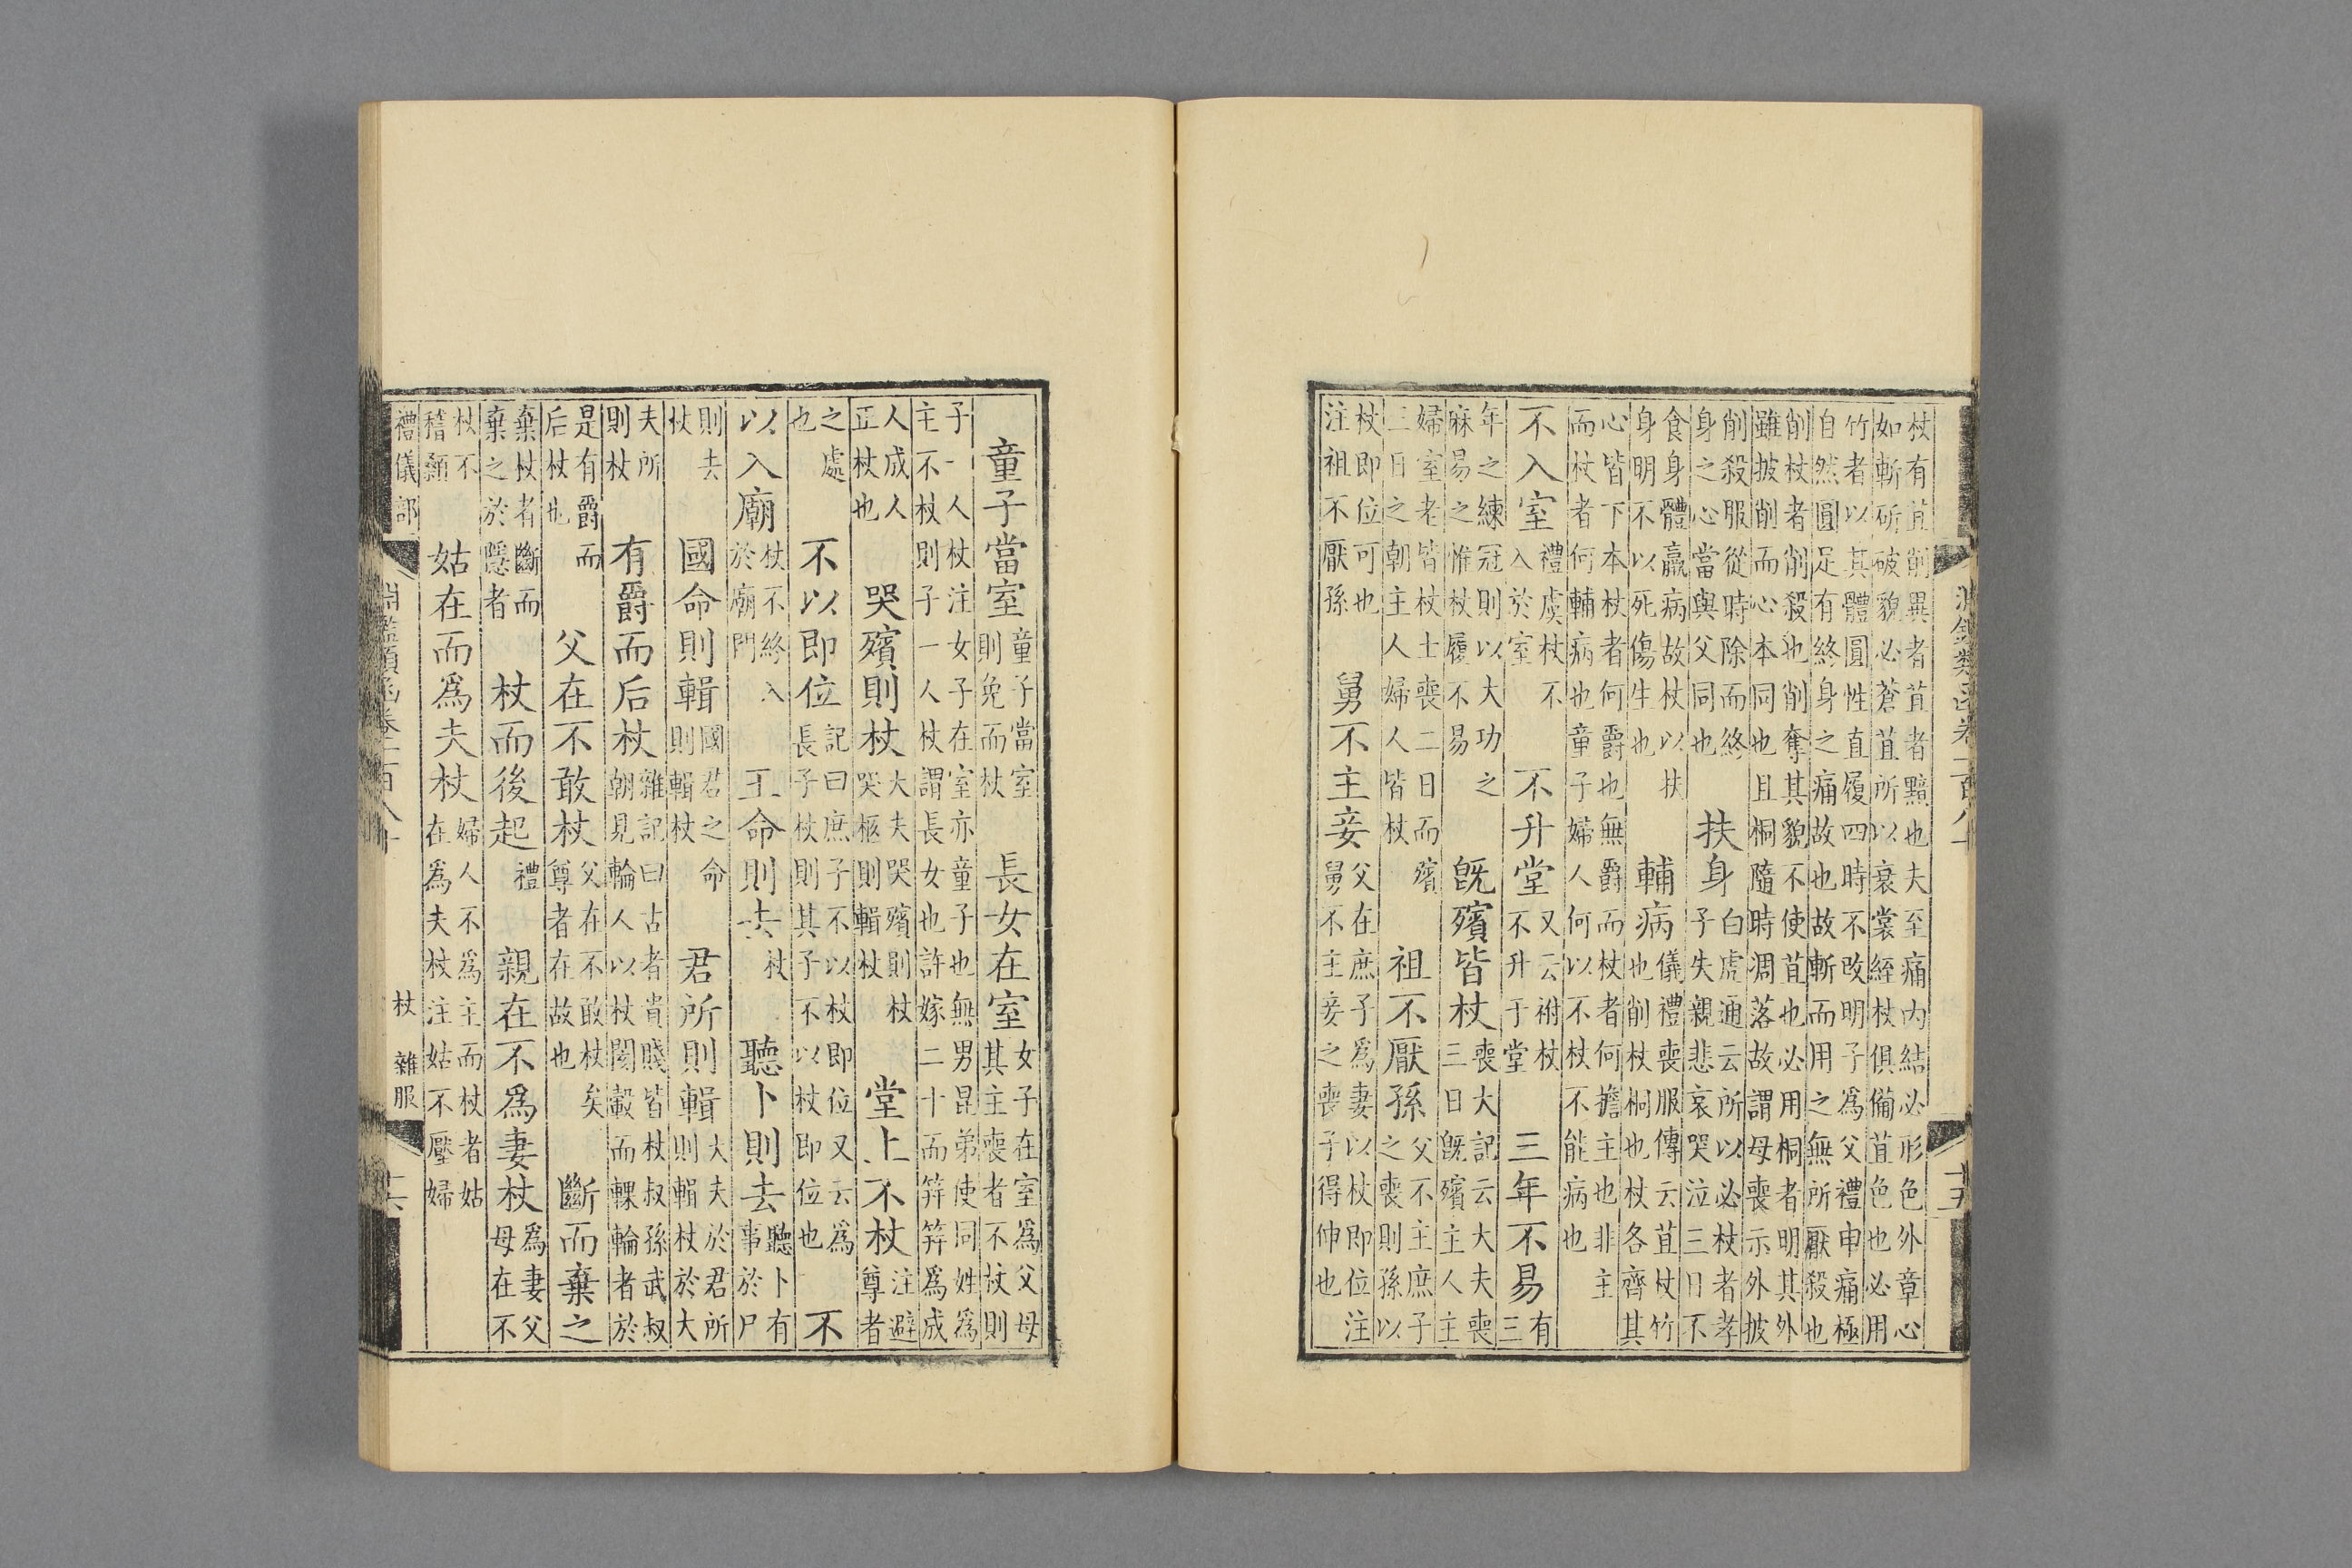 杖有苴削異者苴者黯也夫至痛內結必形色外章心
如斬斫破貌必蒼苴所以衰裳絰杖俱備苴色也必用
竹者以其體圓性直履四時不改明子為父禮申痛極
自然圓足有終身之痛故也故斬而用之無所厭殺也
削杖者削殺也削奪其貌不使苴也必用桐者明其外
雖披削而心本同也且桐隨時凋落故謂母喪示外披
削殺服從時除而終身之心當與父同也 扶身白虎通云所以必杖者孝子失親悲哀哭泣三日不
食身體羸病故杖以扶身明不以死傷生也 輔病儀禮喪服傳云苴杖竹也削杖桐也杖各齊其
心皆下本杖者何爵也無爵而杖者何擔主也非主
而杖者何輔病也童子婦人何以不杖不能病也
不入室禮虞杖不入於室 不升堂又云祔杖不升于堂 三年不易有三
年之練冠則以大功之麻易之惟杖履不易 旣殯皆杖喪大記云大夫喪三日旣殯主人主
婦室老皆杖士喪二日而殯三日之朝主人婦人皆杖 祖不厭孫父不主庶子之喪則孫以
杖即位可也注祖不厭孫 舅不主妾父在庶子爲妻以杖即位注舅不主妾之喪子得伸也
淵鑑類函卷一百八十
十五
童子當室童子當室則免而杖 長女在室女子在室爲父母其主喪者不杖則
子一人杖注女子在室亦童子也無男昆弟使同姓爲
主不杖則子一人杖謂長女也許嫁二十而笄笄爲成
人成人正杖也 哭殯則杖大夫哭殯則杖哭柩則輯杖 堂上不杖注避尊者
之處也 不以即位記曰庶子不以杖即位又云爲長子杖則其子不以杖即位也 不
以入廟杖不終入於廟門 王命則去杖 聽卜則去聽卜有事於尸
則去杖 國命則輯國君之命則輯杖 君所則輯大夫於君所則輯杖於大
夫所則杖 有爵而后杖雜記曰古者貴賤皆杖叔孫武叔朝見輪人以杖關轂而輠輪者於
是有爵而后杖也 父在不敢杖父在不敢杖矣尊者在故也 斷而棄之
棄杖者斷而棄之於隱者 杖而後起禮 親在不爲妻杖爲妻父母在不
杖不稽顙 姑在而爲夫杖婦人不爲主而杖者姑在爲夫杖注姑不壓婦
禮儀部
淵鑑類函卷一百八十
杖 雜服
十六